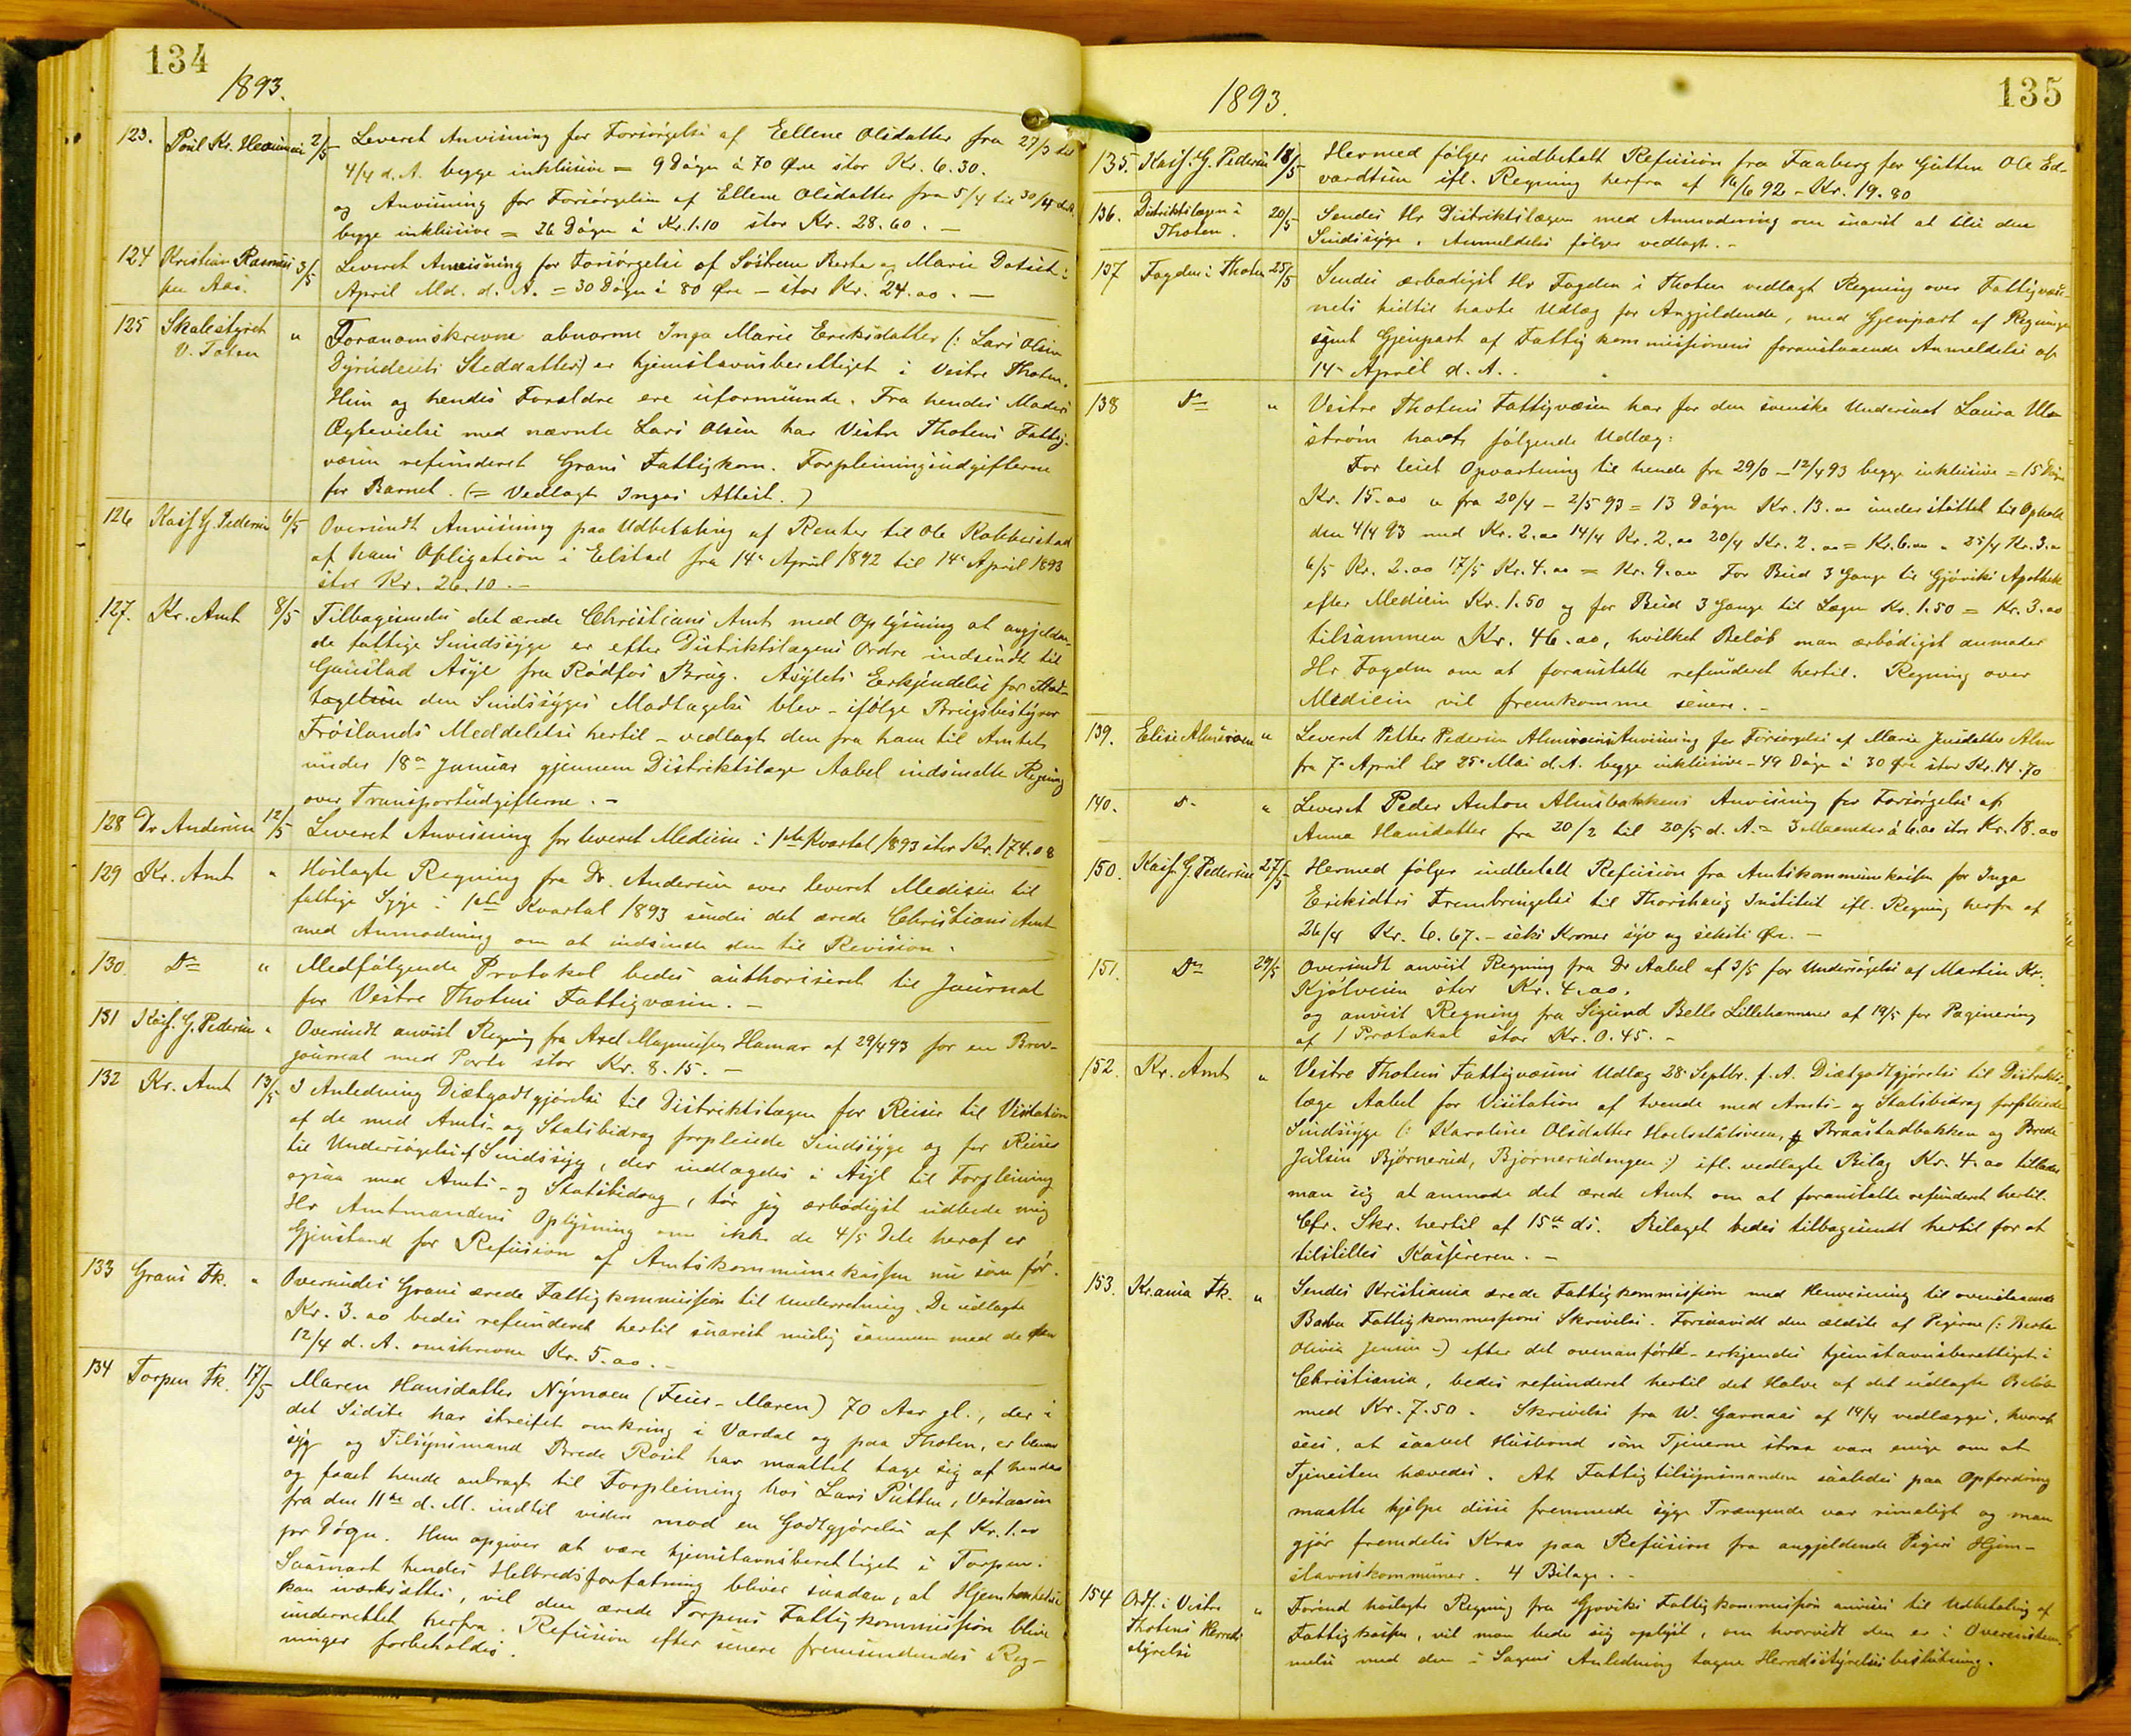 134
1893.
123. Poul Kr. 2/5 Leveret Anvisning for Forsørgelse af Ellene Olsdatter fra 27/3 til
4/4 d. A. begge inklusive = 9 Døgn à 70 Øre stor Kr. 6.30.
og Anvisning for Forsørgelsen af Ellene Olsdatter fra 5/4 til 30/4
begge inklusive = 26 Døgn à Kr. 1.10 stor Kr. 28.60. —
124 Kristian 3/5 Leveret Anvisning for Forsørgelse af Søstrene Berte og Marie i
April Md. d. A. = 30 Døgn à 80 Øre – stor Kr. 24.00. —
125 Skolestyret " Foranomskrevne abnorme Inga Marie Eriksdatter (: Lars Olsen
V. Toten Steddatter) er hjemstavnsberettiget i Vestre Thoten.
Hun og hendes Forældre ere uformuende. Fra hendes Moders
Ægtevielse med nævnte Lars Olsen har Vestre Thotens Fattig-
væsen refunderet Grans Fattigkom. Forpleiningsudgifterne
for Barnet. (= Vedlagt Ingas Attest.)
126 Kass. G. Pedersen 6/5 Oversendt Anvisning paa Udbetaling af Renter til Ole
af hans Obligation i Elstad fra 14de April 1892 til 14de April 1893
stor Kr. 26.10. –
127. Kr. Amt 8/5 Tilbagesendes det ærede Christians Amt med Oplysning at angjelden-
de fattige Sindssyge er efter Distriktslægens Ordre indsendt til
Gaustad Asyl fra Rødfos Brug. Asylets Erkjendelse for Mod-
tagelsen den Sindssyges Modtagelse blev – ifølge Brugsbestyrer
Frøslands Meddelelse hertil – vedlagt den fra ham til Amtet
under 18de Januar gjennem Distriktslæge Aabel indsendte Regning
over Transportudgifterne. –
128 Dr Andersen 12/5 Leveret Anvisning for leveret Medicin i 1ste Kvartal 1893 stor Kr. 174.08
129 Kr. Amt " Hoslagte Regning fra Dr. Andersen over leveret Medisin til
fattige Syge i 1ste Kvartal 1893 sendes det ærede Christians Amt
med Anmodning om at indsende den til Revision.
130 Do " Medfølgende Protokol bedes authoriseret til Journal
for Vestre Thotens Fattigvæsen. –
131 Kass. G. Pedersen " Oversendt anvist Regning fra Axel Magnussen Hamar af 29/4 93 for en Brev-
journal med Porto stor Kr. 8.15. —
132 Kr. Amt 13/5 I Anledning Diætgodtgjørelse til Distriktslægen for Reiser til Visitation
af de med Amts- og Statsbidrag forpleiede Sindssyge og for Reiser
til Undersøgelse af Sindssyge, der indlægges i Asyl til Forpleining
ogsaa med Amts- og Statsbidrag, tør jeg ærbødigst udbede mig
Hr Amtmandens Oplysning om ikke de 4/5 Dele heraf er
Gjenstand for Refusion af Amtskommunekassen nu som før.
133 Grans Fk. " Oversendes Grans ærede Fattigkommission til Underretning. De udlagte
Kr. 3.00 bedes refunderet hertil snarest mulig sammen med de den
12/4 d. A. omskrevne Kr. 5.00. –
134 Torpen Fk. 17/5 Maren Hansdatter Nymoen (Feier-Maren) 70 Aar gl., der i
det Sidste har streifet omkring i Vardal og paa Thoten, er bleven
syg og Tilsynsmand Brede Roset har maattet tage sig af hende
og faaet hende anbragt til Forpleining hos Lars Putten, Vestaasen
fra den 11te d. M. indtil videre mod en Godtgjørelse af Kr. 1.00
pr Døgn. Hun opgiver at være hjemstavnsberettiget i Torpen.
Saasnart hendes Helbredsforfatning bliver saadan, at Hjemsendelse
kan iværksættes, vil den ærede Torpens Fattigkommission blive
underrettet herfra. Refusion efter senere fremsendendes Reg-
ninger forbeholdes.
135
1893.
135. Kass. G. Pedersen 18/5 Hermed følger indbetalt Refusion fra Faaberg for Gutten Ole Ed-
vardtsen ifl. Regning herfra af 16/6 92 – Kr. 19.80
136. Distriktslægen i 20/5 Sendes Hr Distriktslægen med Anmodning om snarest at tilse den
Thoten. Sindssyge. Anmeldelse følger vedlagt. –
137 Fogden i Thoten 25/5 Sendes ærbødigst Hr Fogden i Thoten vedlagt Regning over Fattigvæse-
nets hidtil havte Udlæg for Angjeldende, med Gjenpart af Regningen
samt Gjenpart af Fattigkommissionens foranstaaende Anmeldelse af
14de April d. A..
138 Do " Vestre Thotens Fattigvæsen har for den svenske Undersaat Laura
strøm havt følgende Udlæg:
For leiet Opvartning til hende fra 29/3 – 12/4 93 begge inklusive = 15 Døgn
Kr. 15.00 " fra 20/4 – 2/5 93 = 13 Døgn Kr. 13.00 understøttet til Ophold
den 4/4 93 med Kr. 2.00 14/4 Kr. 2.00 20/4 Kr. 2.00 = Kr. 6.00 " 25/4 Kr. 3.00
6/5 Kr. 2.00 17/5 Kr. 4.00 = Kr. 9.00 For Bud 3 Gange til Gjøviks Apothek
efter Medicin Kr. 1.50 og for Bud 3 Gange til Lægen Kr. 1.50 = Kr. 3.00
tilsammen Kr. 46.00, hvilket Beløb man ærbødigst anmoder
Hr Fogden om at foranstalte refunderet hertil. Regning over
Medicin vil fremkomme senere. –
139. Elise " Leveret Petter Pedersen Anvisning for Forsørgelse af Marie Jensdatter Alm
fra 7de April til 25de Mai d. A. begge inklusive – 49 Døgn à 30 Øre stor Kr. 14.70
140. " Leveret Peder Anton Almsbakkens Anvisning for Forsørgelse af
Anna Hansdatter fra 20/2 til 20/5 d. A. = 3 Maaneder à 6.00 stor Kr. 18.00
150. Kass. G. Pedersen 27/5 Hermed følger indbetalt Refusion fra Amtskommunekassen for Inga
Eriksdtrs Frembringelse til Thorshaug Institut ifl. Regning herfra af
26/4 Kr. 6.67. – seks Kroner syv og seksti Øre. –
151. Do 29/5 Oversendt anvist Regning fra Dr Aabel af 3/5 for Undersøgelse af Martin Kr.
Kjølveien stor Kr. 4.00.
og anvist Regning fra Sigurd Belle Lillehammer af 19/5 for Paginering
af 1 Protokol stor Kr. 0.45. –
152. Kr. Amt " Vestre Thotens Fattigvæsens Udlæg 28 Septbr. f. A. Diætgodtgjørelse til Distrikts-
læge Aabel for Visitation af tvende med Amts- og Statsbidrag forpleiede
Sindssyge (: Karoline Olsdatter Braastadbakken og Brede
Julsen Bjørnerud, Bjørnerudengen :) ifl. vedlagte Bilag Kr. 4.00 tillader
man sig at anmode det ærede Amt om at foranstalte refunderet hertil.
Cfr. Skr. hertil af 15de ds. Bilaget bedes tilbagesendt hertil for at
tilstilles Kassereren. –
153. Kr.ania Fk. " Sendes Kristiania ærede Fattigkommission med Henvisning til ovenstaaende
Fattigkommissions Skrivelse. Forsaavidt den ældste af Pigerne (: Berte
Olivia Jensen –) efter det ovenanførte – erkjendes hjemstavnsberettiget i
Christiania, bedes refunderet hertil det Halve af det udlagte Beløb
med Kr. 7.50. Skrivelse fra W. Garnaas af 14/4 vedlægges, hvoraf
sees, at saavel Husbond som Tjenerne straa være enige om at
Tjenesten hævedes. At Fattigtilsynsmanden saaledes paa Opfordring
maatte hjelpe disse fremmede syge Trængende var rimeligt og man
gjør fremdeles Krav paa Refusion fra angjeldende Piges Hjem-
stavnskommuner. 4 Bilage. –
154 Ordf. i Vestre " Forinden hoslagte Regning fra Gjøviks Fattigkommission anvises til Udbetaling af
Thotens Herreds- Fattigkassen, vil man bede sig oplyst, om hvorvidt den er i Overensstem-
styrelse melse med den i Sagens Anledning tagne Herredsstyrelsesbeslutning.